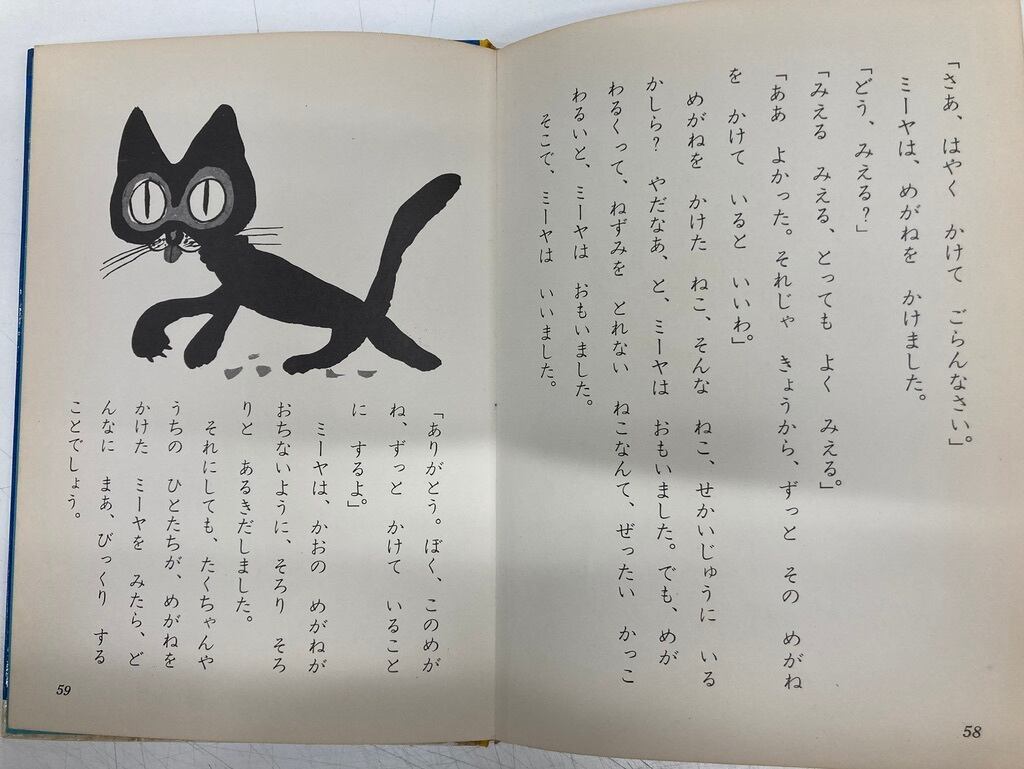 「さあ、はやく　かけて　ごらんなさい。」
ミーヤは、めがねを　かけました。
「どう、みえる？」
「みえる　みえる、とっても　よく　みえる。」
「ああ　よかった。それじゃ　きょうから、ずっと　その　めがね
を　かけて　いると　いいわ。」
めがねを　かけた　ねこ、そんな　ねこ、せかいじゅうに　いる
かしら？　やだなあ、と、ミーヤは　おもいました。でも、めが
わるくって、ねずみを　とれない　ねこなんて、ぜったい　かっこ
わるいと、ミーヤは　おもいました。
そこで、ミーヤは　いいました。
58
「ありがとう。ぼく、このめが
ね、ずっと　かけて　いること
に　するよ。」
ミーヤは、かおの　めがねが
おちないように、そろり　そろ
りと　あるきだしました。
それにしても、たくちゃんや
うちの　ひとたちが、めがねを
かけた　ミーヤを　みたら、ど
んなに　まあ、びっくり　する
ことでしょう。
59